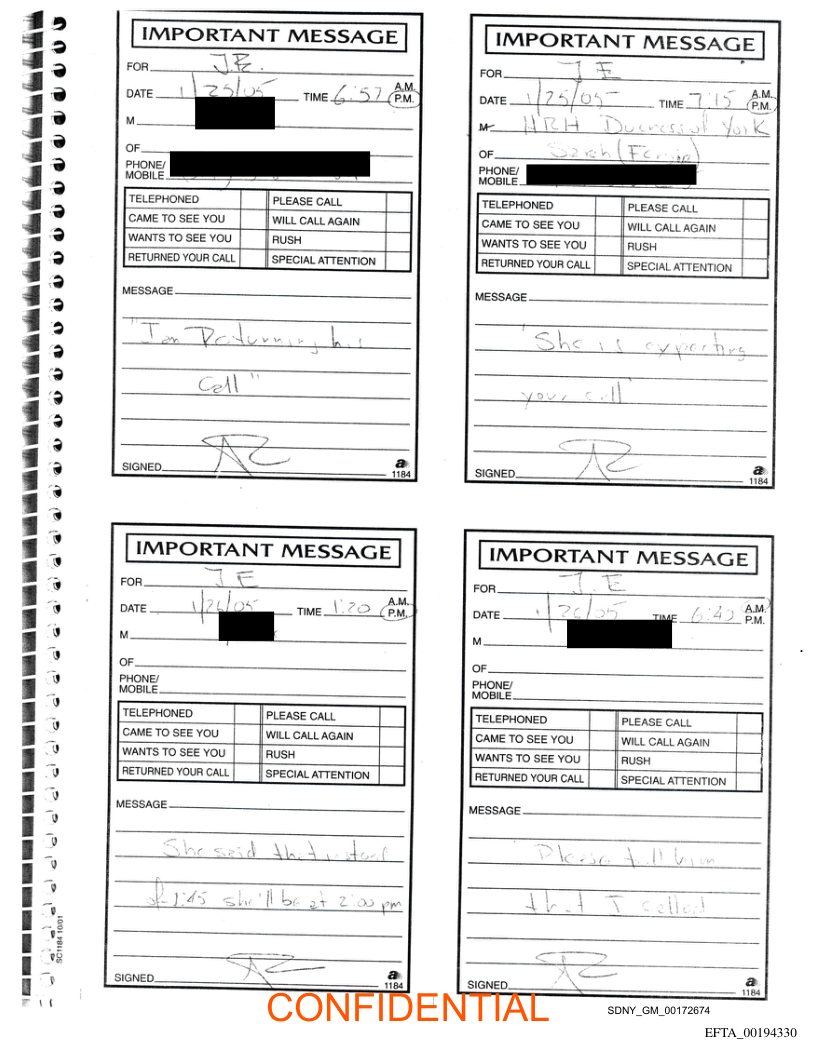 IMPORTANT MESSAGE
FOR J.E.
DATE 1/25/05 TIME 6:57 A.M. P.M.
M
OF
PHONE/
MOBILE
TELEPHONED PLEASE CALL
CAME TO SEE YOU WILL CALL AGAIN
WANTS TO SEE YOU RUSH
RETURNED YOUR CALL SPECIAL ATTENTION
MESSAGE
"I am Returning his
Call"
SIGNED
a
1184
IMPORTANT MESSAGE
FOR J E
DATE 1/25/05 TIME 7:15 A.M. P.M.
M HRH Duchess of York
OF Sarah (Fergie)
PHONE/
MOBILE
TELEPHONED PLEASE CALL
CAME TO SEE YOU WILL CALL AGAIN
WANTS TO SEE YOU RUSH
RETURNED YOUR CALL SPECIAL ATTENTION
MESSAGE
"She is expecting
your call"
SIGNED
a
1184
IMPORTANT MESSAGE
FOR J E
DATE 1/26/05 TIME 1:20 A.M. P.M.
M
OF
PHONE/
MOBILE
TELEPHONED PLEASE CALL
CAME TO SEE YOU WILL CALL AGAIN
WANTS TO SEE YOU RUSH
RETURNED YOUR CALL SPECIAL ATTENTION
MESSAGE
She said that instead
of 1:45 she'll be at 2:00 pm
SIGNED
a
1184
IMPORTANT MESSAGE
FOR J.E
DATE 1/26/05 TIME 6:45 A.M. P.M.
M
OF
PHONE/
MOBILE
TELEPHONED PLEASE CALL
CAME TO SEE YOU WILL CALL AGAIN
WANTS TO SEE YOU RUSH
RETURNED YOUR CALL SPECIAL ATTENTION
MESSAGE
"Please tell him
that I called
SIGNED
a
1184
SC1184 10/01
CONFIDENTIAL
SDNY_GM_00172674
EFTA_00194330